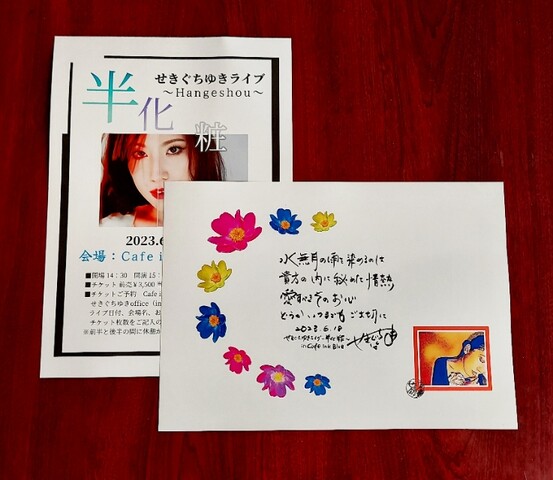 せきぐちゆきライブ
～Hangeshou～
半化粧
2023.6
会場：Cafe i
■開場 14：30 開演 15：
■チケット 前売 ¥3,500
■チケットご予約 Cafe
せきぐちゆきoffice（in
ライブ日付、会場名、お
チケット枚数をご記入の
※前半と後半の間に休憩が
水無月の雨で染めるのは
貴方の内に秘めた情熱
愛しい
その お心
どうか いつまでも ご大切に
2023.6.18
in Cafe Ink Blue